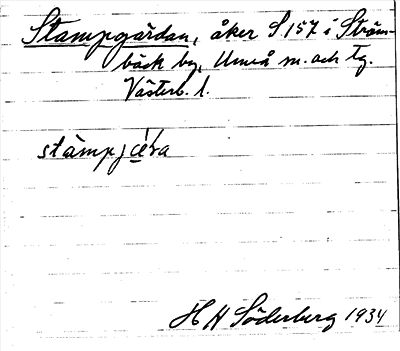 Stampgärdan, åker S.157 i Ström-
bäck by, Umeå sn. och tg.
Västerb. l.
stàmpj
H H Söderberg 1934